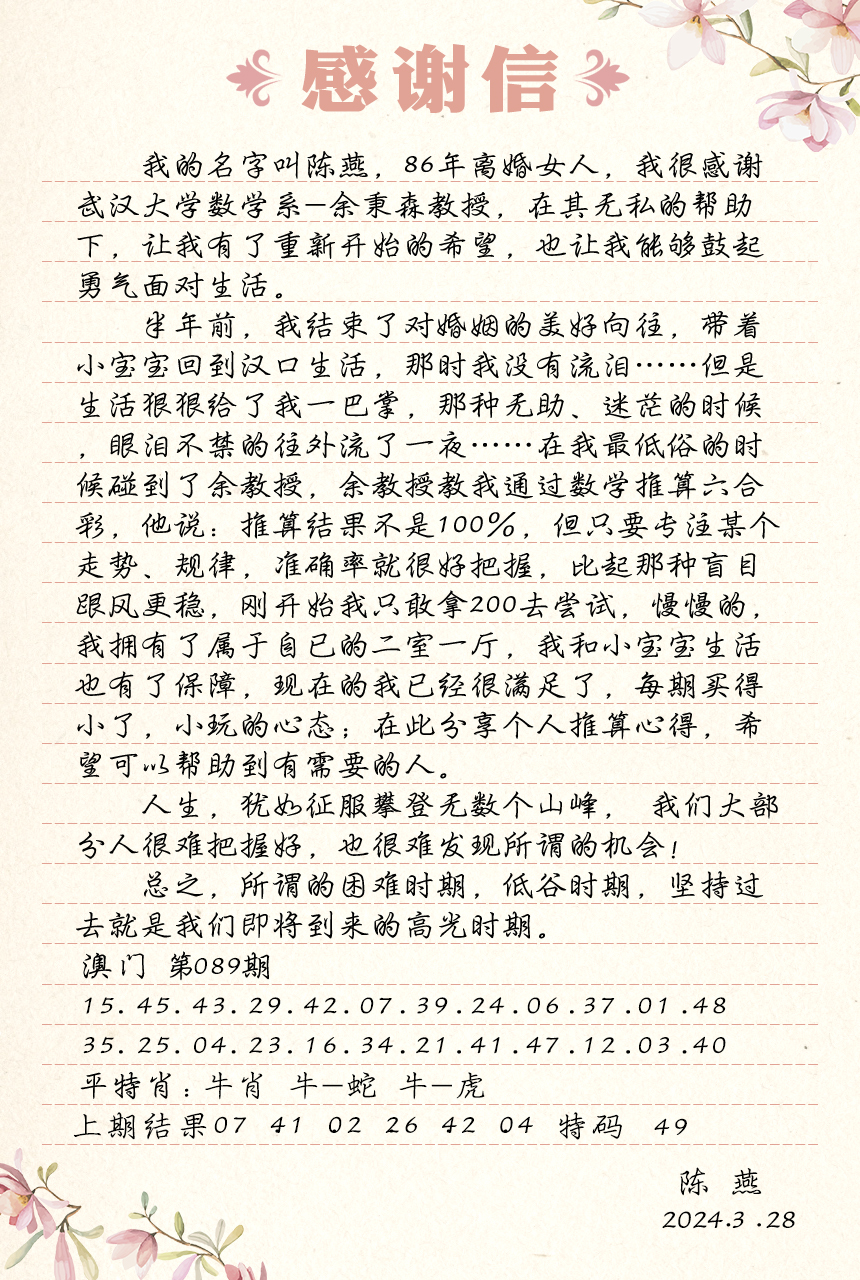 感谢信
我的名字叫陈燕，86年离婚女人，我很感谢
武汉大学数学系—余秉森教授，在其无私的帮助
下，让我有了重新开始的希望，也让我能够鼓起
勇气面对生活。
半年前，我结束了对婚姻的美好向往，带着
小宝宝回到汉口生活，那时我没有流泪……但是
生活狠狠给了我一巴掌，那种无助、迷茫的时候
，眼泪不禁的往外流了一夜……在我最低俗的时
候碰到了余教授，余教授教我通过数学推算六合
彩，他说：推算结果不是100%，但只要专注某个
走势、规律，准确率就很好把握，比起那种盲目
跟风更稳，刚开始我只敢拿200去尝试，慢慢的，
我拥有了属于自已的二室一厅，我和小宝宝生活
也有了保障，现在的我已经很满足了，每期买得
小了，小玩的心态；在此分享个人推算心得，希
望可以帮助到有需要的人。
人生，犹如征服攀登无数个山峰， 我们大部
分人很难把握好，也很难发现所谓的机会！
总之，所谓的困难时期，低谷时期，坚持过
去就是我们即将到来的高光时期。
澳门 第089期
15.45.43.29.42.07.39.24.06.37.01.48
35.25.04.23.16.34.21.41.47.12.03.40
平特肖：牛肖 牛—蛇 牛—虎
上期结果07 .41 .02 .26 .42 .04 特码 49
陈 燕
2024.3.28